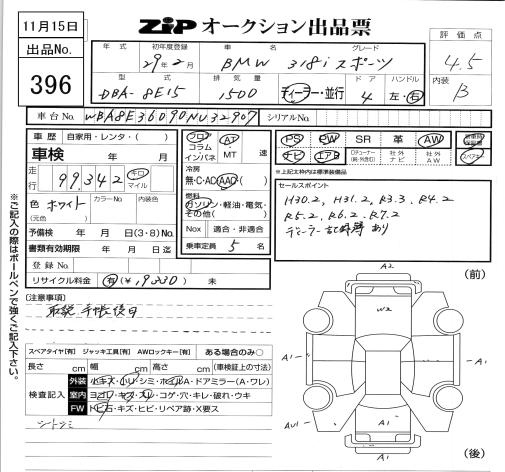 11月15日
ZiP オークション出品票
出品No.
396
年式 初年度登録 車名 グレード
29年2月 BMW 318i スポーツ
型式 排気量 ドア ハンドル
DBA-8E15 1500 ディーラー・並行 4 左・右
評価点
4.5
内装
B
車台No. WBA8E36090NU32907 シリアルNo.
車歴 自家用・レンタ・( )
車検 年 月
走行 99,342 キロ マイル
色 ホワイト カラーNo. 内装色
(元色)
予備検 年 月 日(3・8)No.
書類有効期限 年 月 日迄
登録No.
リサイクル料金 有(¥,9330) 未
フロア コラム インパネ AT・MT 速
冷房
無・C・AC・AAC・( )
燃料
ガソリン・軽油・電気・その他( )
Nox 適合・非適合
乗車定員 5 名
PS PW SR 革 AW
ナビ エアB 社外ナビ 社外AW
※上記太枠内は標準装備品
セールスポイント
H30.2, H31.2, R3.3, R4.2
R5.2, R6.2, R7.2
ディーラー記録簿あり
※ご記入の際はボールペンで強くご記入下さい。
[注意事項]
取説、手帳後日
スペアタイヤ[有] ジャッキ工具[有] AWロックキー[有] ある場合のみ○
長さ cm 幅 cm 高さ cm (車検証上の寸法)
検査記入
外装 小キズ・小リ・シミ・ホイルA・ドアミラー(A・ワレ)
室内 ヨゴレ・キズ・スレ・コゲ・穴・キレ・破れ・ウキ
FW トビ石・キズ・ヒビ・リペア跡・X要ス
シートシミ
A2
(前)
W2
A1
A1
AU1
A1
A1
(後)